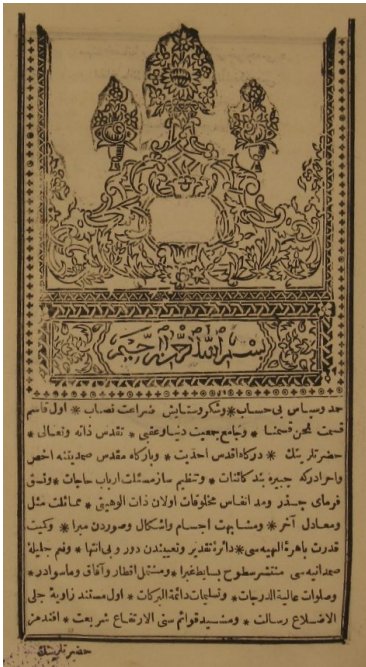 بسم الله الرحمن الرحيم
حمد وسپاس بی حساب * وشکر وستایش ضراعت نصاب * اول قاسم
قسمت نحن قسمنا * وجامع جمعیت دنیا وعقبی * تقدس ذاته وتعالی *
حضرتلرینك * درکاه اقدس احدیت * وبارکاه مقدس صمدیتنه اخص
واحرادر که جبیرهٔ بند کائنات * وتنظیم ساز مسئلت ارباب حاجات * ونسق
فرمای جذر ومد انفاس مخلوقات اولان ذات الوهیتی * مماثلت مثل
ومعادل آخر * ومشابهت اجسام واشکال وصوردن مبرا * وکیت
قدرت باهرهٔ الهیه سی * دائرهٔ تقدیر وتعییندن دور وبی انتها * وفیم جلیلهٔ
صمدانیه سی منتشر سطوح بسایط غبرا * ومشتمل اقطار وآفاق وماسوادر *
وصلوات عالیة الدرجات * وتسلیمات دائمة البرکات * اول مستند زاویهٔ جلی
الاضلاع رسالت * ومشید قوائم سی الارتفاع شریعت * افندمز
حضرتلرینك